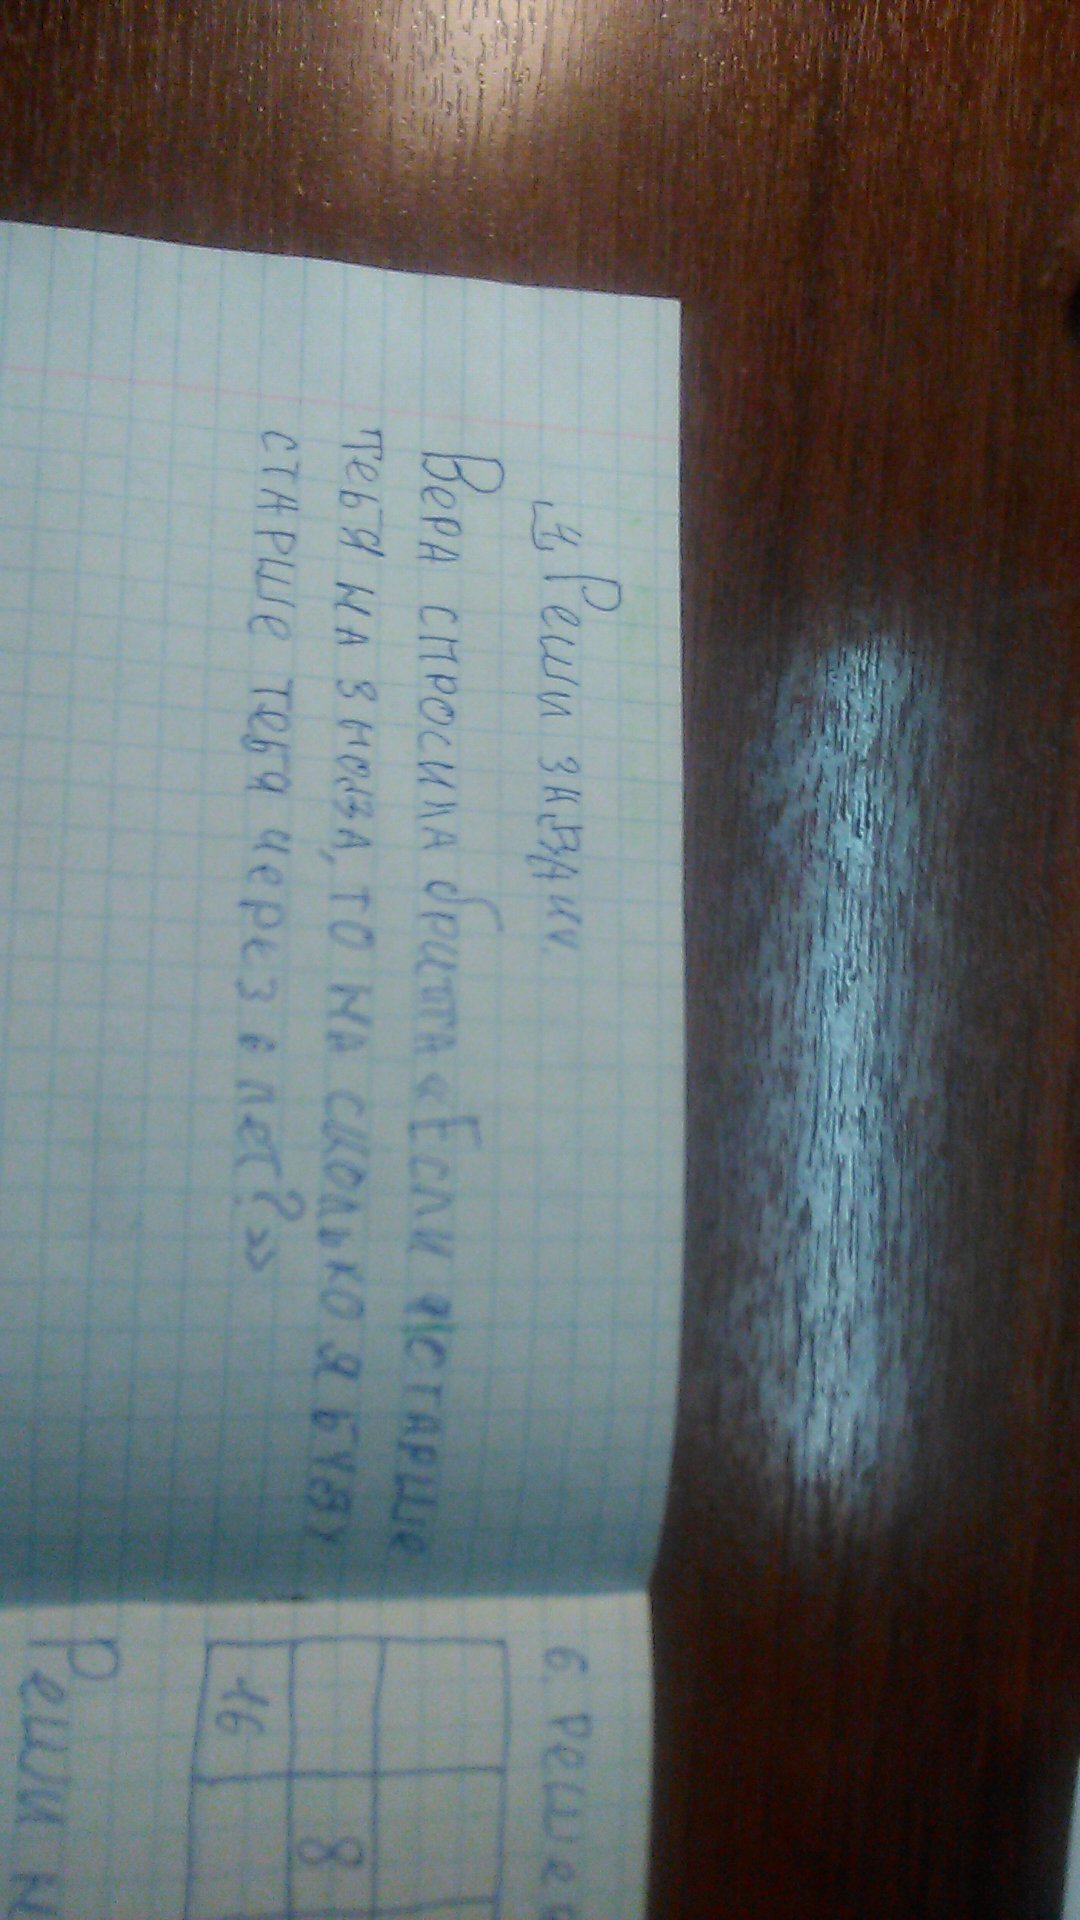 4. Реши задачу.
Вера спросила брата «Если я старше
тебя на 3 года, то на сколько я буду
старше тебя через 6 лет?»
6. Реши
8
16
Реши